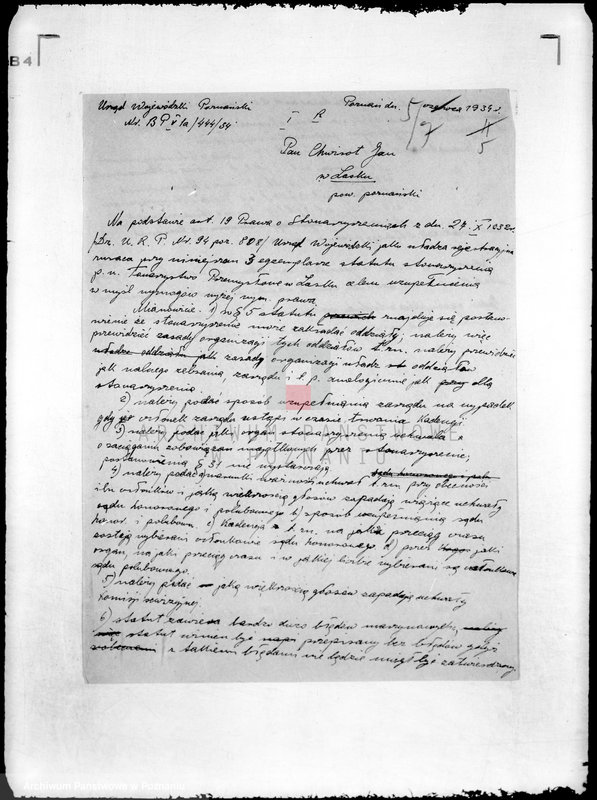 B 4
Urząd Wojewódzki Poznański
Nr. BP V 1a/444/34
Poznań dn. czerwca 1934 r.
I R
5/7
4/5
Pan Chwirot Jan
w Lasku
pow. poznański
Na podstawie art. 19 Prawa o Stowarzyszeniach z dn. 27. X 1932 r.
/Dz. U. R. P. Nr. 94 poz. 808/ Urząd Wojewódzki jako władza rejestracyjna
zwraca przy niniejszem 3 egzemplarze statutu stowarzyszenia
p. n. Towarzystwo Przemysłowe w Lasku celem uzupełnienia
w myśl wymogów wyżej wym. prawa.
Mianowicie: 1) w § 5 statutu znajduje się postano-
wienie że stowarzyszenie może zakładać oddziały; należy więc
przewidzieć zasady organizacji tych oddziałów t. zn. należy przewidzieć
władze oddziałów jak zasady organizacji władz oddziałów
jak walnego zebrania, zarządu i t. p. analogicznie jak dla
stowarzyszenia.
2) należy podać sposób uzupełniania zarządu na wypadek
gdy członek zarządu ustąpi w czasie trwania Kadencji
3) należy podać jaki organ stowarzyszenia uchwala
o zaciąganiu zobowiązań majątkowych przez stowarzyszenie;
postanowienia § 31 nie wystarczają
4) należy podać ważności uchwał t. zn. przy obecności
ilu członków i jaką większością głosów zapadają wiążące uchwały
sądu honorowego i polubownego b) sposób uzupełniania sądu
honor. i polubow. c) Kadencja t. zn. na jaki przeciąg czasu
zostają wybierani członkowie sądu honorowego. d) przez jaki
organ, na jaki przeciąg czasu i w jakiej liczbie wybierani są członkowie
sądu polubownego.
5) należy podać jaką większością głosów zapadają uchwały
Komisji rewizyjnej.
6) statut zawiera bardzo dużo błędów maszynowych,
statut winien być przepisany bez błędów gdyż
z takiemi błędami nie będzie mógł być zatwierdzony
ARCHIWUM PAŃSTWOWE
W POZNANIU
Archiwum Państwowe w Poznaniu